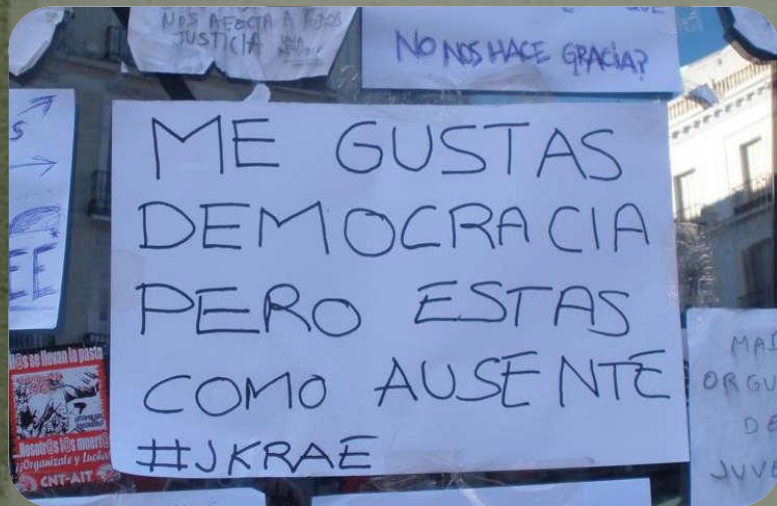 NOS AFECTA A TODOS
JUSTICIA
NO NOS HACE GRACIA?
ME GUSTAS
DEMOCRACIA
PERO ESTAS
COMO AUSENTE
#JKRAE
S
EE
se llevan la pasta
Nosotr@s l@s muert@s
¡¡Organízate y Lucha!!
CNT-AIT
MAD
ORGU
DE
JUV